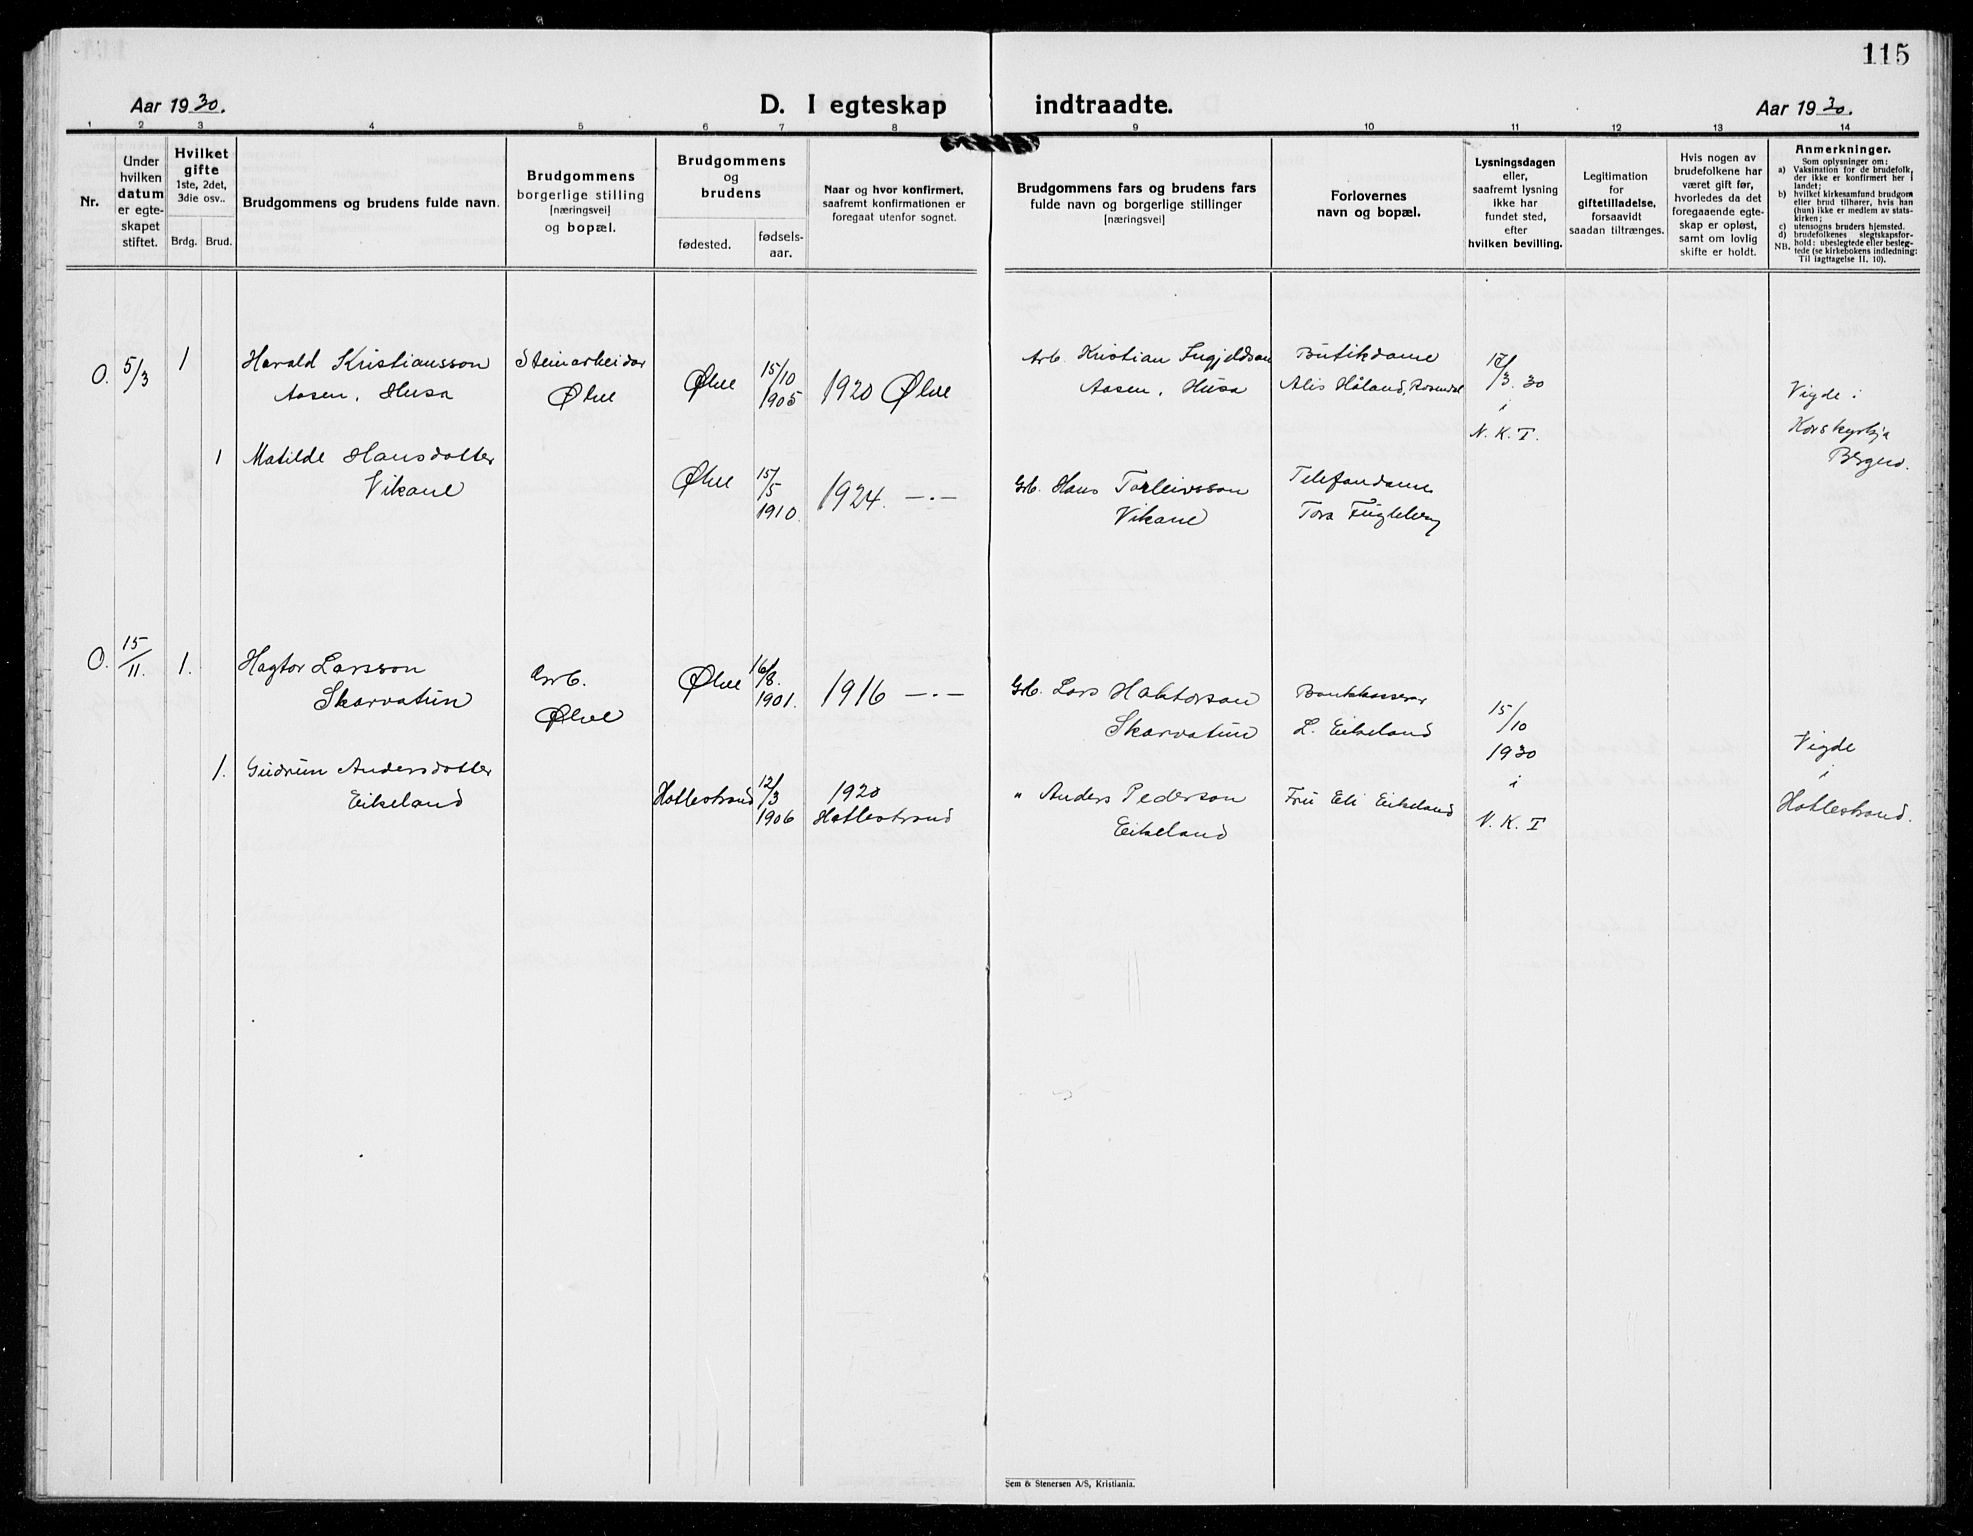 115
Aar 1930.
D. I egteskap indtraadte.
Aar 1930.
1 2 3 4 5 6 7 8 9 10 11 12 13 14
Nr.
Under
hvilken
datum
er egte-
skapet
stiftet.
Hvilket
gifte
1ste, 2det,
3die osv..
Brdg. Brud.
Brudgommens og brudens fulde navn.
Brudgommens
borgerlige stilling
[næringsvei]
og bopæl.
Brudgommens
og
brudens
fødested.
fødsels-
aar.
Naar og hvor konfirmert,
saafremt konfirmationen er
foregaat utenfor sognet.
Brudgommens fars og brudens fars
fulde navn og borgerlige stillinger
[næringsvei]
Forlovernes
navn og bopæl.
Lysningsdagen
eller,
saafremt lysning
ikke har
fundet sted,
efter
hvilken bevilling.
Legitimation
for
giftetilladelse,
forsaavidt
saadan tiltrænges.
Hvis nogen av
brudefolkene har
været gift før,
hvorledes da det
foregaaende egte-
skap er opløst,
samt om lovlig
skifte er holdt.
Anmerkninger.
Som oplysninger om:
a) Vaksination for de brudefolk,
der ikke er konfirmert her i
landet;
b) hvilket kirkesamfund brudgom
eller brud tilhører, hvis han
(hun) ikke er medlem av stats-
kirken;
c) utensogns bruders hjemsted.
d) brudefolkenes slegtskapsfor-
hold: ubeslegtede eller besleg-
tede (se kirkebokens indledning:
NB. Til iagttagelse II. 10).
O. 5/3 1 Harald Kristiansson
Aasen, Husa
Steinarbeidar
Ølve
Ølve
15/10
1905
1920 Ølve
Arb. Kristian Ingjeldson
Aasen, Husa
Butikdame
Alis Håland, Rosendal
17/3. 30
i
N. K. T.
Vigde i
Korskyrkja
Bergen.
1 Matilde Hansdotter
Vikane
Ølve
15/5
1910.
1924. —.—
Grb. Hans Torleivsson
Vikane
Telefondame
Tora Fugleberg
O. 15/11. 1. Hagtor Larsson
Skarvatun
Arb.
Ølve
Ølve
16/8
1901.
1916 —.—
Grb. Lars Haktorson
Skarvatun
Bankkasserar
L. Eikeland
15/10
1930
i
N. K. T
Vigde
i
Hatlestrand.
1. Gudrun Andersdotter
Eikeland
Hatlestrand
12/3
1906
1920
Hatlestrand
" Anders Pederson
Eikeland
Fru Eli Eikeland
Sem & Stenersen A/S, Kristiania.